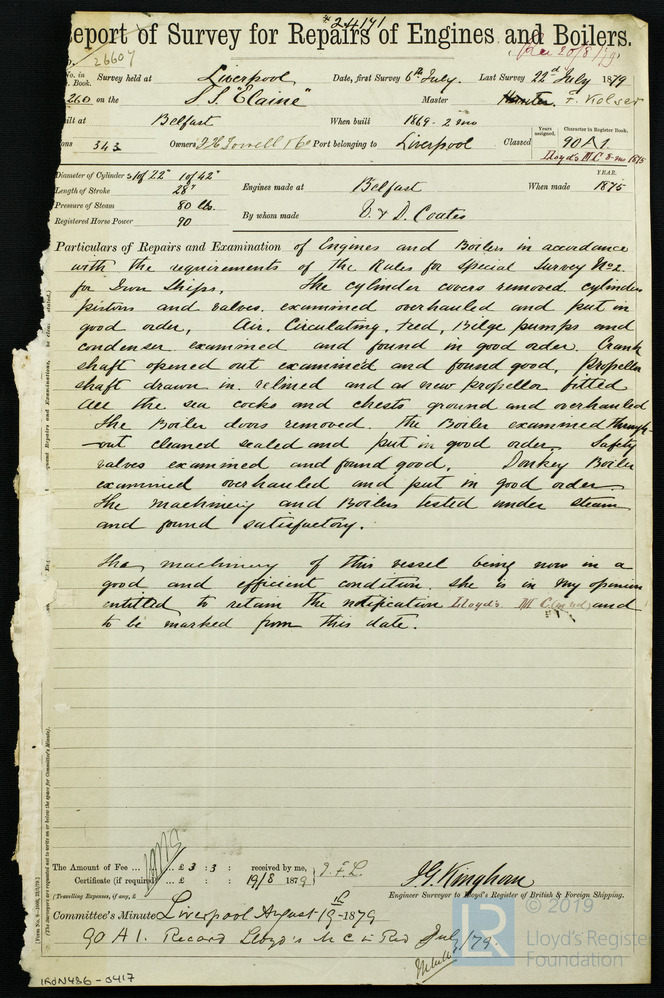 * 24141
Report of Survey for Repairs of Engines and Boilers.
26607
No. in Book. Survey held at Liverpool Date, first Survey 6th July. Last Survey 22nd July 1879
260 on the S.S. "Elaine" Master F. Kolser
Built at Belfast When built 1869 - 2 mo
Tons 343 Owners Port belonging to Liverpool Classed Years assigned. Character in Register Book. 90 A1.
Lloyd's M.C. 8-mo 1875
Diameter of Cylinders 1 of 22" 1 of 42"
Length of Stroke 28" Engines made at Belfast When made YEAR. 1875
Pressure of Steam 80 lbs.
Registered Horse Power 90 By whom made V. & D. Coates
Particulars of Repairs and Examination of Engines and Boilers in accordance
with the requirements of the Rules for Special Survey No 2
for Iron Ships. The cylinder covers removed. cylinders
pistons and valves. examined overhauled and put in
good order, Air. Circulating. Feed, Bilge pumps and
condenser examined and found in good order. Crank
shaft opened out examined and found good, Propeller
shaft drawn in. relined and a new propeller fitted
All the sea cocks and chests ground and overhauled
The Boiler doors removed. The Boiler examined through-
-out cleaned scaled and put in good order. Safety
valves examined and found good, Donkey Boiler
examined overhauled and put in good order
The machinery and Boilers tested under steam
and found satisfactory.
The machinery of this vessel being now in a
good and efficient condition. she is in my opinion
entitled to retain the notification Lloyd's M C. (in red) and
to be marked from this date.
The Amount of Fee ... £ 3 : 3 : received by me,
Certificate (if required) ... £ : : 19/8 1879
(Travelling Expenses, if any, £ )
J.G. Kinghorn
Engineer Surveyor to Lloyd's Register of British & Foreign Shipping.
Committee's Minute Liverpool August 19th 1879
90 A 1. Record Lloyd's M C in Red July /79.
IRON486-0417
LR
© 2019
Lloyd's Register
Foundation